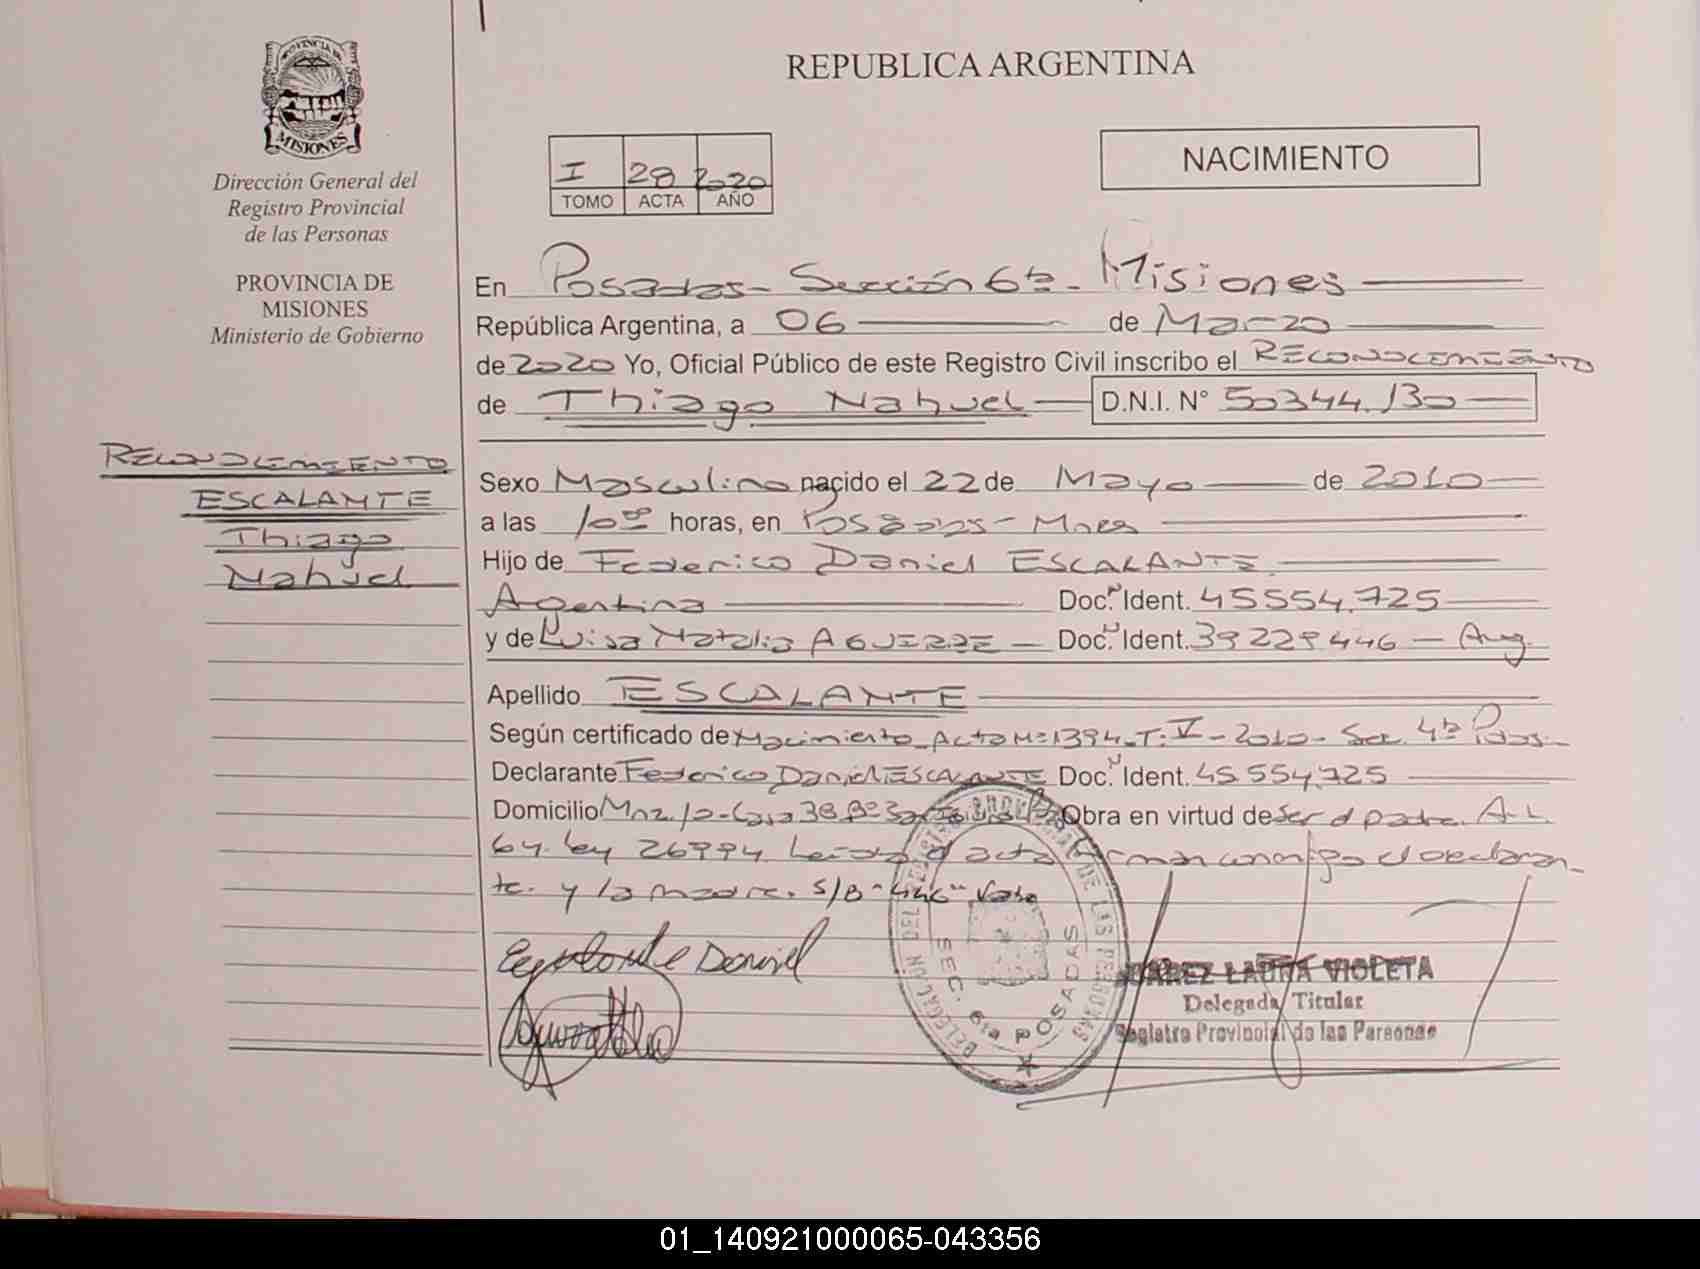 REPUBLICA ARGENTINA
PROVINCIA DE
MISIONES
Dirección General del
Registro Provincial
de las Personas
PROVINCIA DE
MISIONES
Ministerio de Gobierno
RECONOCIMIENTO
ESCALANTE
Thiago
Nahuel
I 28 2020
TOMO ACTA AÑO
NACIMIENTO
En Posadas - Sección 6ta - Misiones
República Argentina, a 06 de Marzo
de 2020 Yo, Oficial Público de este Registro Civil inscribo el RECONOCIMIENTO
de Thiago Nahuel D.N.I. N° 50344.130
Sexo Masculino nacido el 22 de Mayo de 2010
a las 10 horas, en Posadas - Mnes
Hijo de Federico Daniel ESCALANTE
Argentina Doc. Ident. 45554.725
y de Luisa Natalia AGUIRRE Doc. Ident. 39229446 - Arg.
Apellido ESCALANTE
Según certificado de Nacimiento - Acta Nº 1394 - T: V - 2010 - Sec. 4ta Pdas.
Declarante Federico Daniel ESCALANTE Doc. Ident. 45.554.725
Domicilio Mnz. 10 - Casa 38 Bº Obra en virtud de ser el padre. Art.
64. Ley 26994. Leída el acta firman conmigo el declaran-
te. y la madre. S/B "446" Vale
Escalante Daniel
DELEGACION DEL REGISTRO PROVINCIAL DE LAS PERSONAS
SEC. 6ta POSADAS
JUAREZ LAURA VIOLETA
Delegada Titular
Registro Provincial de las Personas
01_140921000065-043356